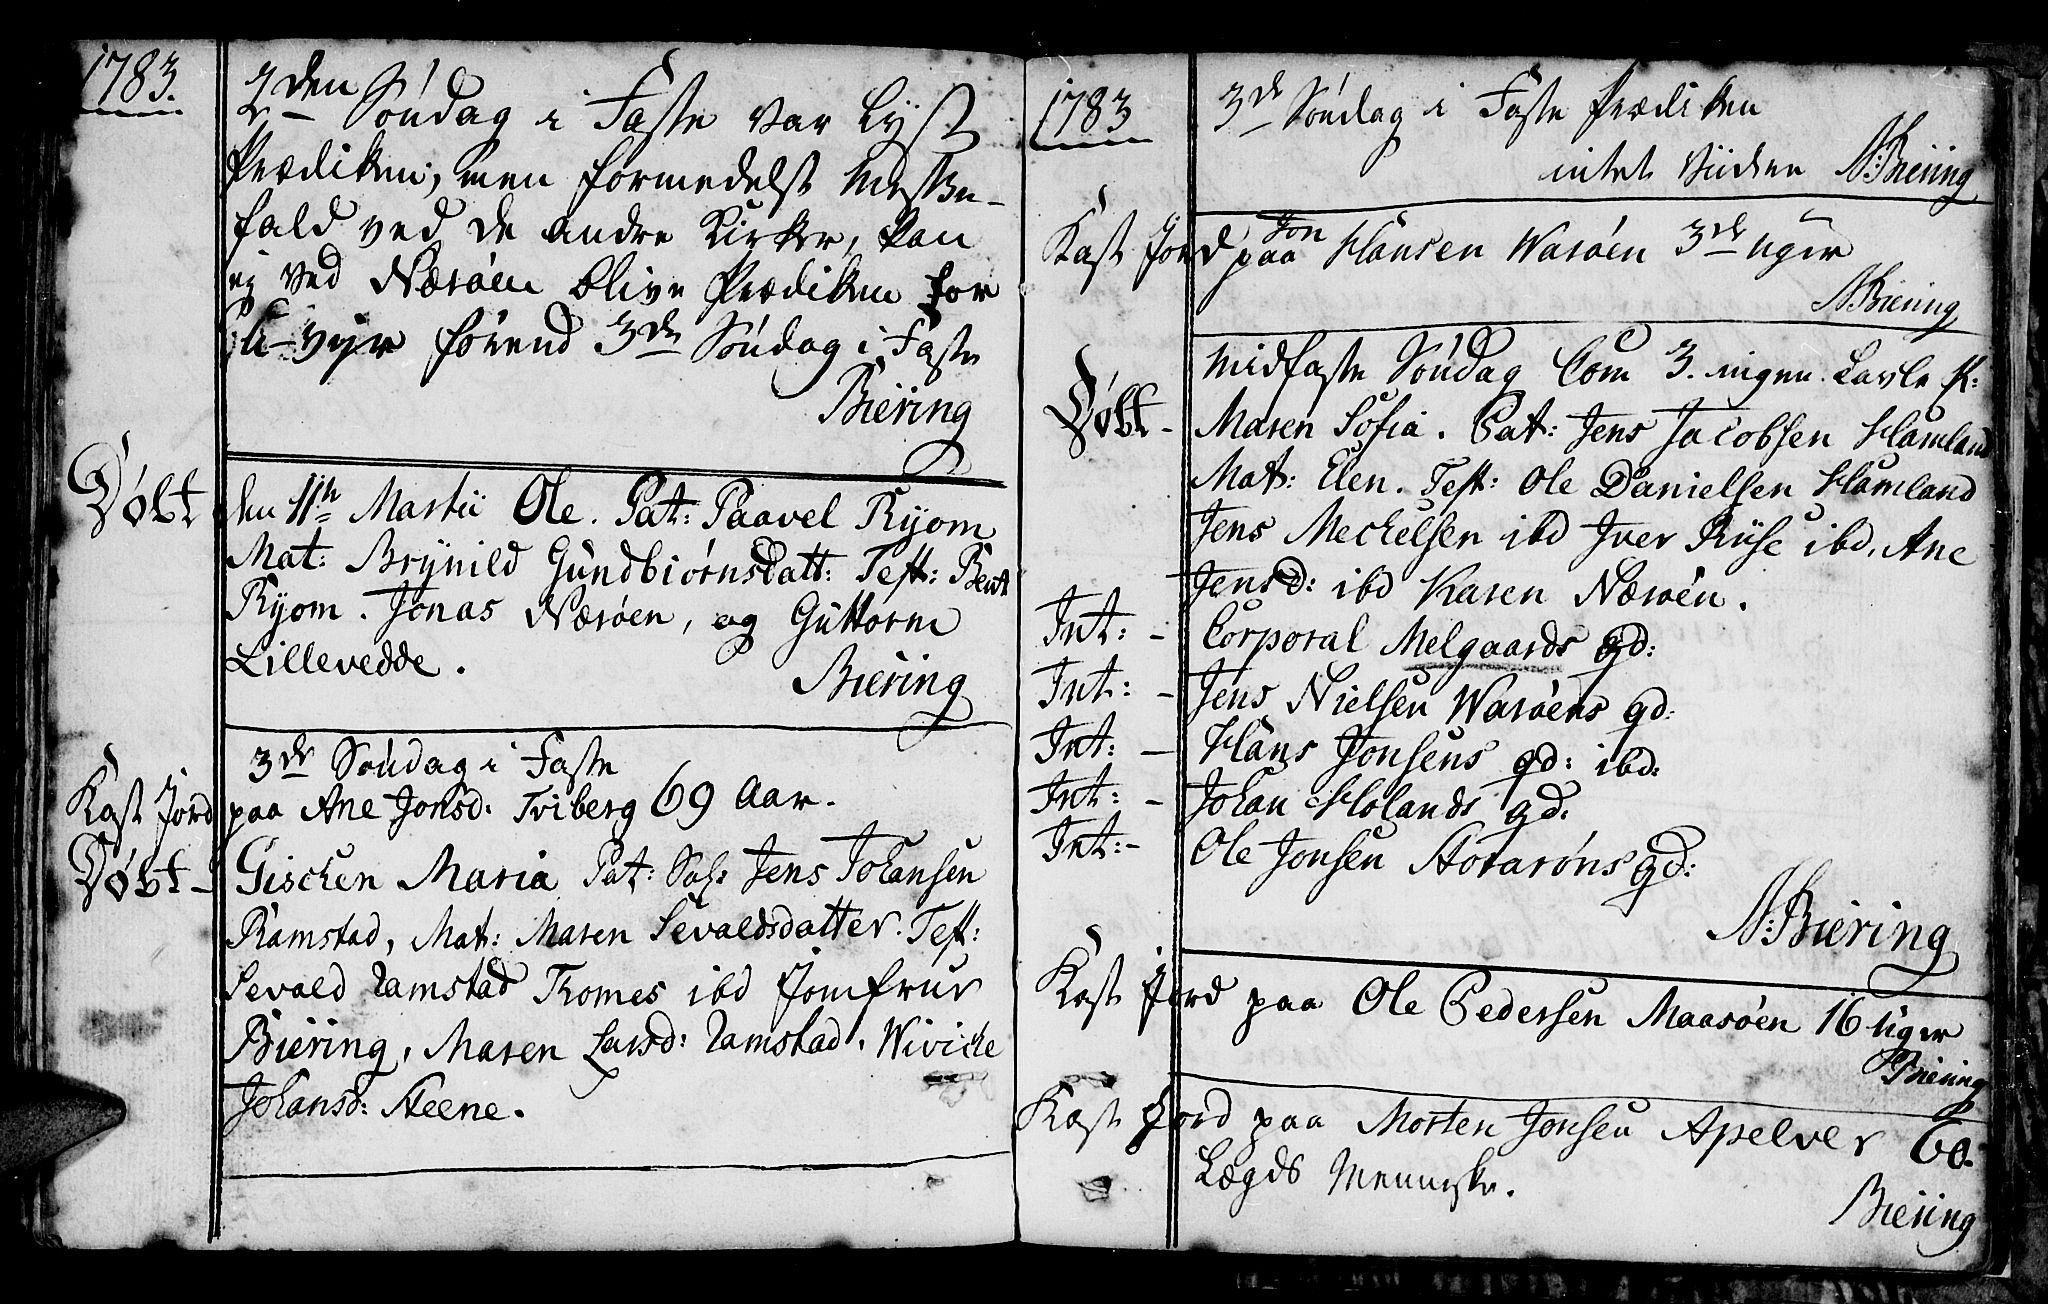 1783.
2den Søndag i Faste var Lyst
Prædiken, men formedelst
fald ved de andre Kirker, kan
ej ved Nærøen blive Prædiken for
førend 3de Søndag i Faste
Biering
Døbt den 11te Martii Ole. Pat: Paavel Ryom
Mat: Brynild Gundbiørnsdatt: Test: Bent
Ryom. Jonas Nærøen, og Guttorm
Lillevedde.
Biering
3de Søndag i Faste
Kast Jord paa Ane Jonsd: Tviberg 69 Aar.
Døbt - Gischen Maria Pat: Sal: Jens Johansen
Ramstad, Mat: Maren Sevaldsdatter. Test:
Sevald Ramstad Thomes ibd Jomfrue
Biering, Maren Larsd: Ramstad. Wiviche
Johansd: Steene.
1783
3de Søndag i Faste Prædiken
intet Viidere N: Biering
Kast Jord paa Jon Hansen Warøen 3de Uger
N Biering
Midfaste Søndag Com 3. ingen. Tavle P:
Døbt - Maren Sofia. Pat: Jens Jacobsen Hamland
Mat: Elen. Test: Ole Danielsen Hamland
Jens Meckelsen ibd Iver Riise ibd. Ane
Jensd: ibd Karen Nærøen.
Int: - Corporal Melgaards qd:
Int: - Jens Nielsen Warøens qd:
Int: - Hans Jonsens qd: ibd:
Int: - Johan Holands qd:
Int: - Ole Jonsen Storarøns qd:
N: Biering
Kast Jord paa Ole Pedersen Maasøen 16 Uger
Biering
Kast Jord paa Morten Jonsen Apelver 60.
Lægds Menniske.
Biering